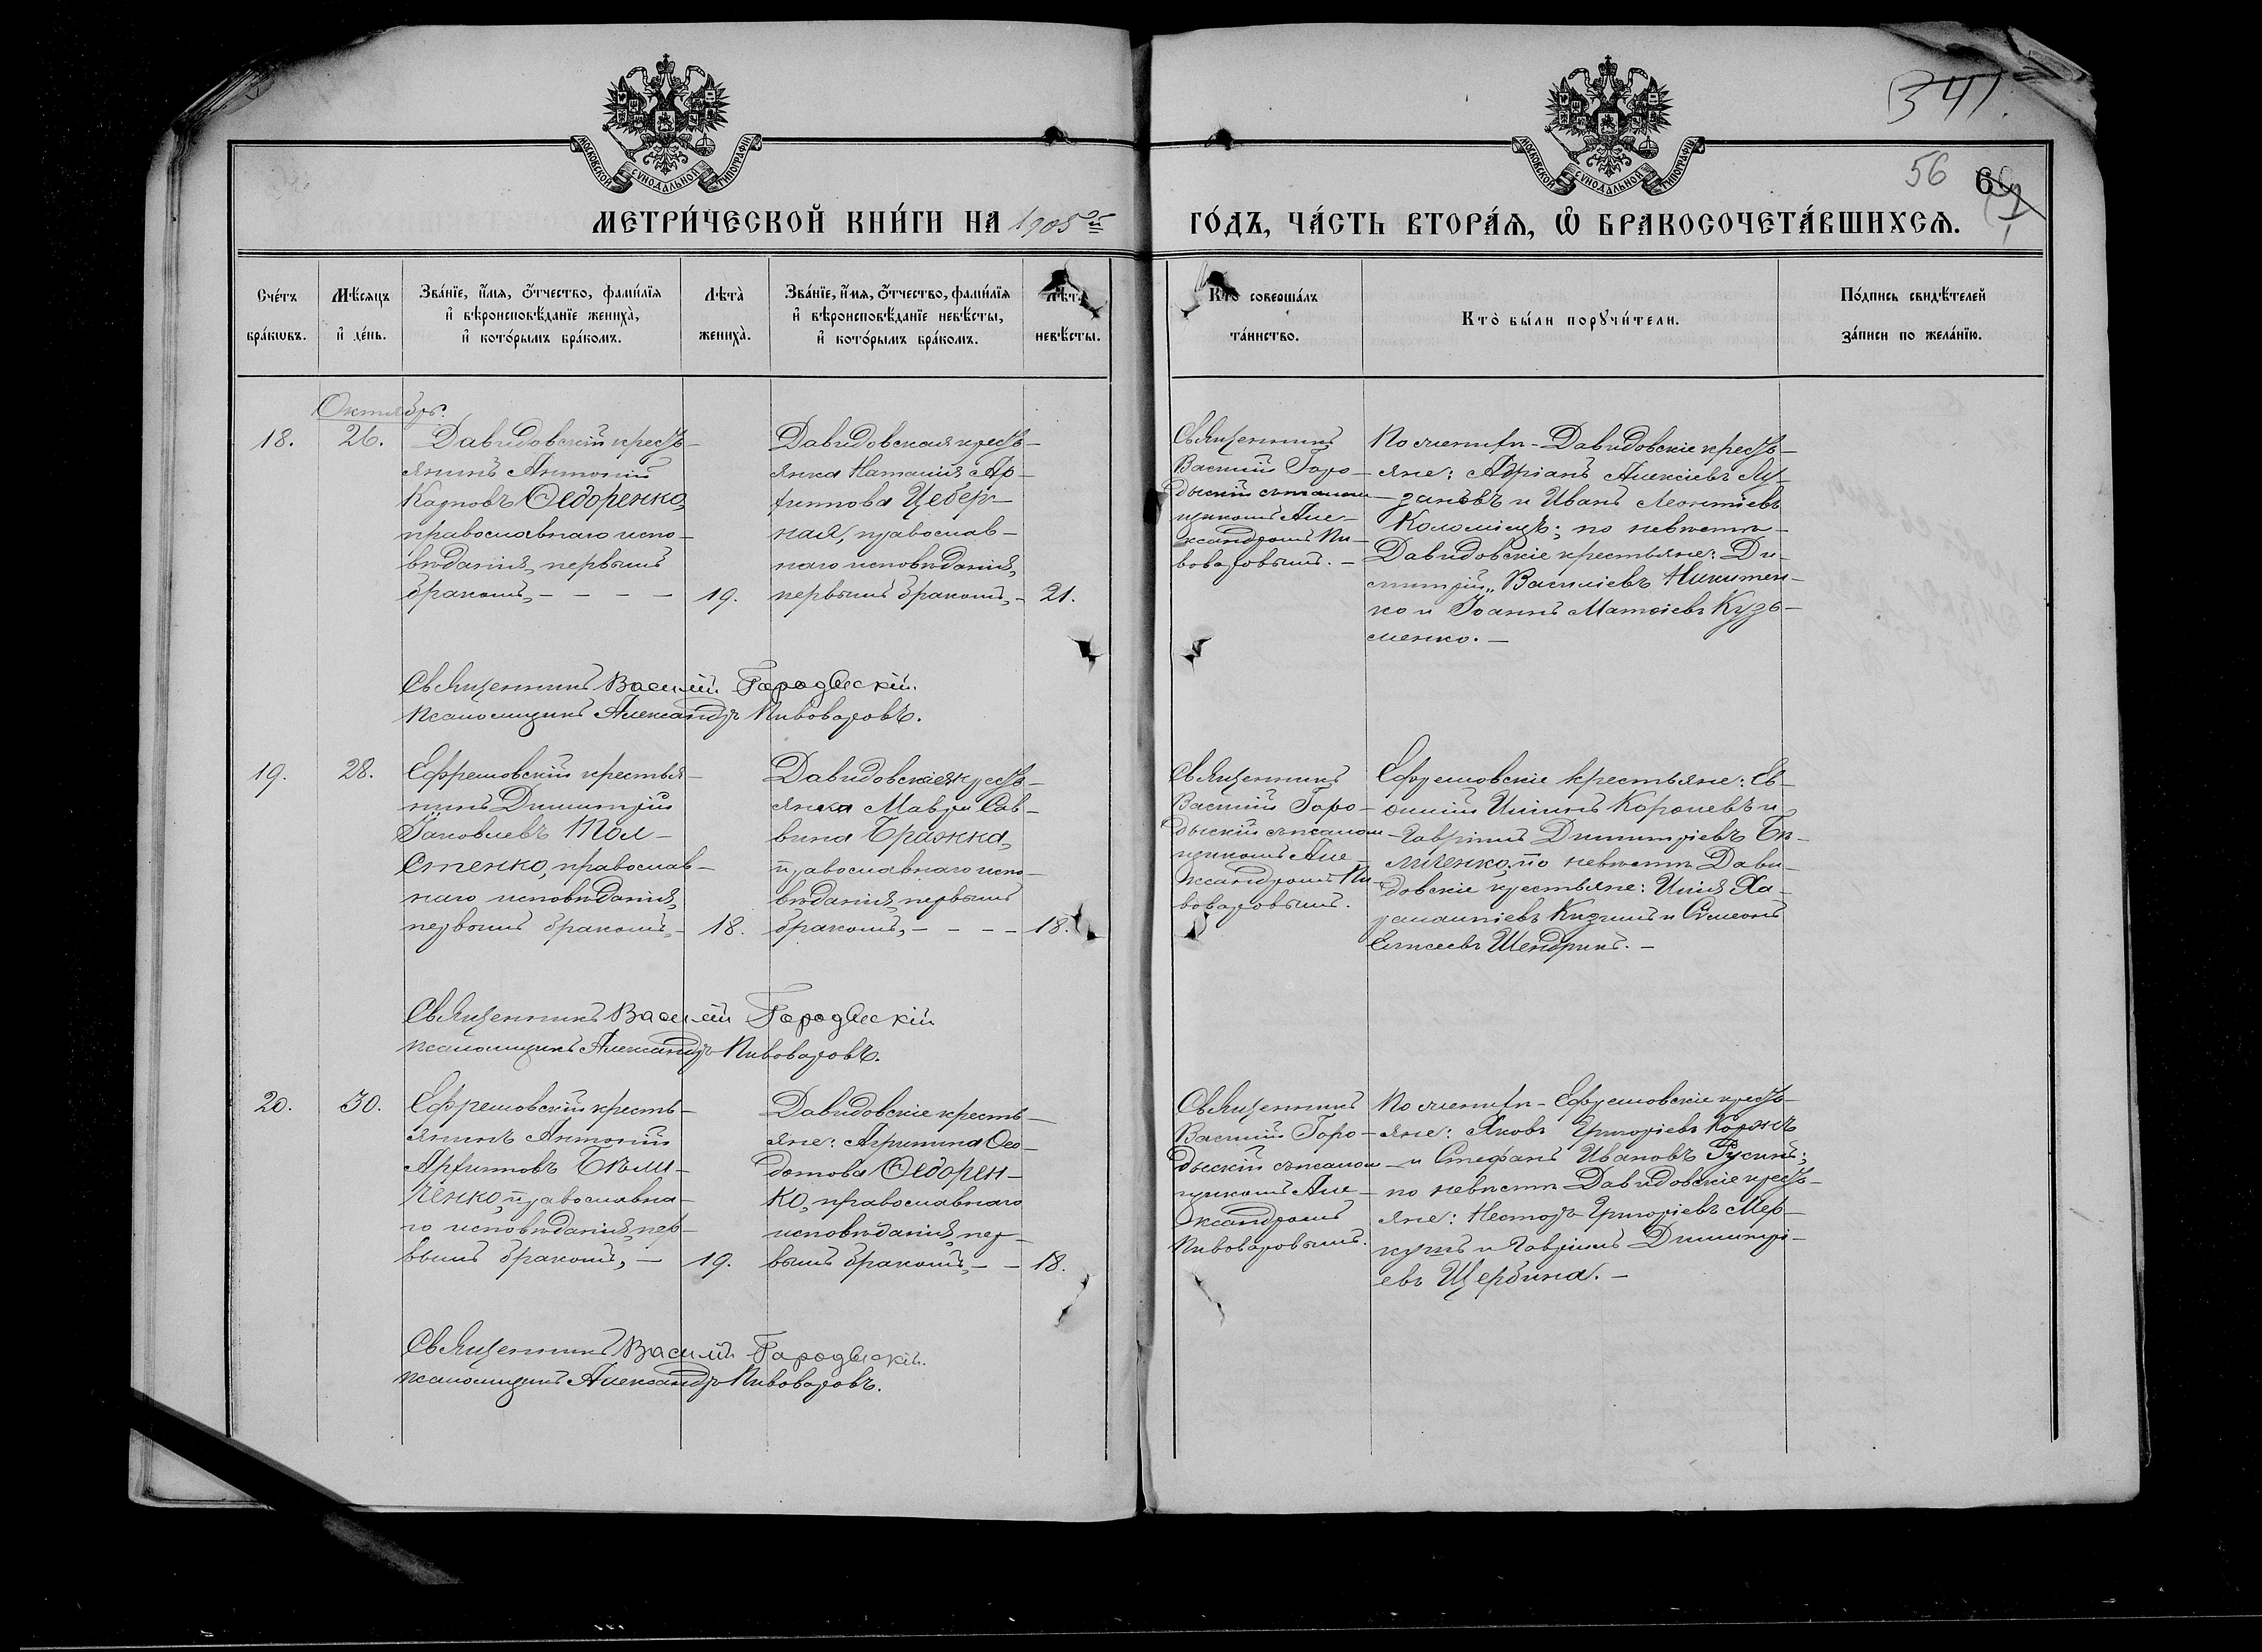 341.
56
МОСКОВСКОЙ СѴНОДАЛЬНОЙ ТИПОГРАФІИ
МОСКОВСКОЙ СѴНОДАЛЬНОЙ ТИПОГРАФІИ
МЕТРИ́ЧЕСКОЙ КНИ́ГИ НА 1905 ой
ГО́ДЪ, ЧА́СТЬ ВТОРА́Я, Ѡ҆ БРАКОСОЧЕТА́ВШИХСЯ.
Сче́тъ
бра́кѡвъ.
Мѣ́сяцъ
и҆ де́нь.
Зва́нїе, и҆́мя, ѻ҆́тчество, фами́лїя
и҆ вѣроисповѣ́данїе жениха̀,
и҆ кото́рымъ бра́комъ.
Лѣта̀
жениха̀.
Зва́нїе, и҆́мя, ѻ҆́тчество, фами́лїя
и҆ вѣроисповѣ́данїе невѣ́сты,
и҆ кото́рымъ бра́комъ.
Лѣта̀
невѣ́сты.
Кто̀ соверша́лъ
та́инство.
Кто̀ бы́ли порꙋчи́тели.
По́дпись свидѣ́телей
за́писи по жела́нїю.
Октябрь.
18.
26.
Давидовскій кресть-
янинъ Антоній
Карповъ Ѳедоренко,
православнаго испо-
вѣданія, первымъ
бракомъ, - - - -
19.
Давидовская кресть-
янка Наталія Ар-
хиппова Цебер-
ная, православ-
наго исповѣданія,
первымъ бракомъ, -
21.
Священникъ
Василій Горо-
дыскій съ псалом-
щикомъ Але-
ксандромъ Пи-
воваровымъ. -
По женихѣ - Давидовскіе кресть-
яне: Адріанъ Алексіевъ Лу-
зановъ и Иванъ Леонтіевъ
Коломіецъ; по невѣстѣ -
Давидовскіе крестьяне: Ди-
митрій Василіевъ Никитен-
ко и Іоаннъ Матѳіевъ Кузь-
менко. -
Священникъ Василій Городыскій.
Псаломщикъ Александръ Пивоваровъ.
19.
28.
Ефремовскій крестья-
нинъ Димитрій
Іаковлевъ Тол-
стенко, православ-
наго исповѣданія,
первымъ бракомъ, -
18.
Давидовская кресть-
янка Мавра Сав-
вина Бражка,
православнаго испо-
вѣданія, первымъ
бракомъ, - - - -
18.
Священникъ
Василій Горо-
дыскій съ псалом-
щикомъ Але-
ксандромъ Пи-
воваровымъ.
Ефремовскіе крестьяне: Ев-
ѳимій Иліинъ Королевъ и
Гавріилъ Димитріевъ Бѣ-
личенко, по невѣстѣ Дави-
довскіе крестьяне: Илія Ха-
рлампіевъ Кизимъ и Сѵмеонъ
Елисеевъ Шендрикъ. -
Священникъ Василій Городыскій
Псаломщикъ Александръ Пивоваровъ.
20.
30.
Ефремовскій кресть-
янинъ Антоній
Архипповъ Бѣли-
ченко, православна-
го исповѣданія, пер-
вымъ бракомъ, -
19.
Давидовскіе кресть-
яне: Агрипина Ѳео-
дотова Ѳедорен-
ко, православнаго
исповѣданія, пер-
вымъ бракомъ, - -
18.
Священникъ
Василій Горо-
дыскій съ псалом-
щикомъ Але-
ксандромъ
Пивоваровымъ.
По женихѣ - Ефремовскіе кресть-
яне: Яковъ Григоріевъ Коржъ
и Стефанъ Ивановъ Русинъ;
по невѣстѣ Давидовскіе кресть-
яне: Несторъ Григоріевъ Мер-
кушъ и Гавріилъ Димитрі-
евъ Щербина. -
Священникъ Василій Городыскій.
Псаломщикъ Александръ Пивоваровъ.